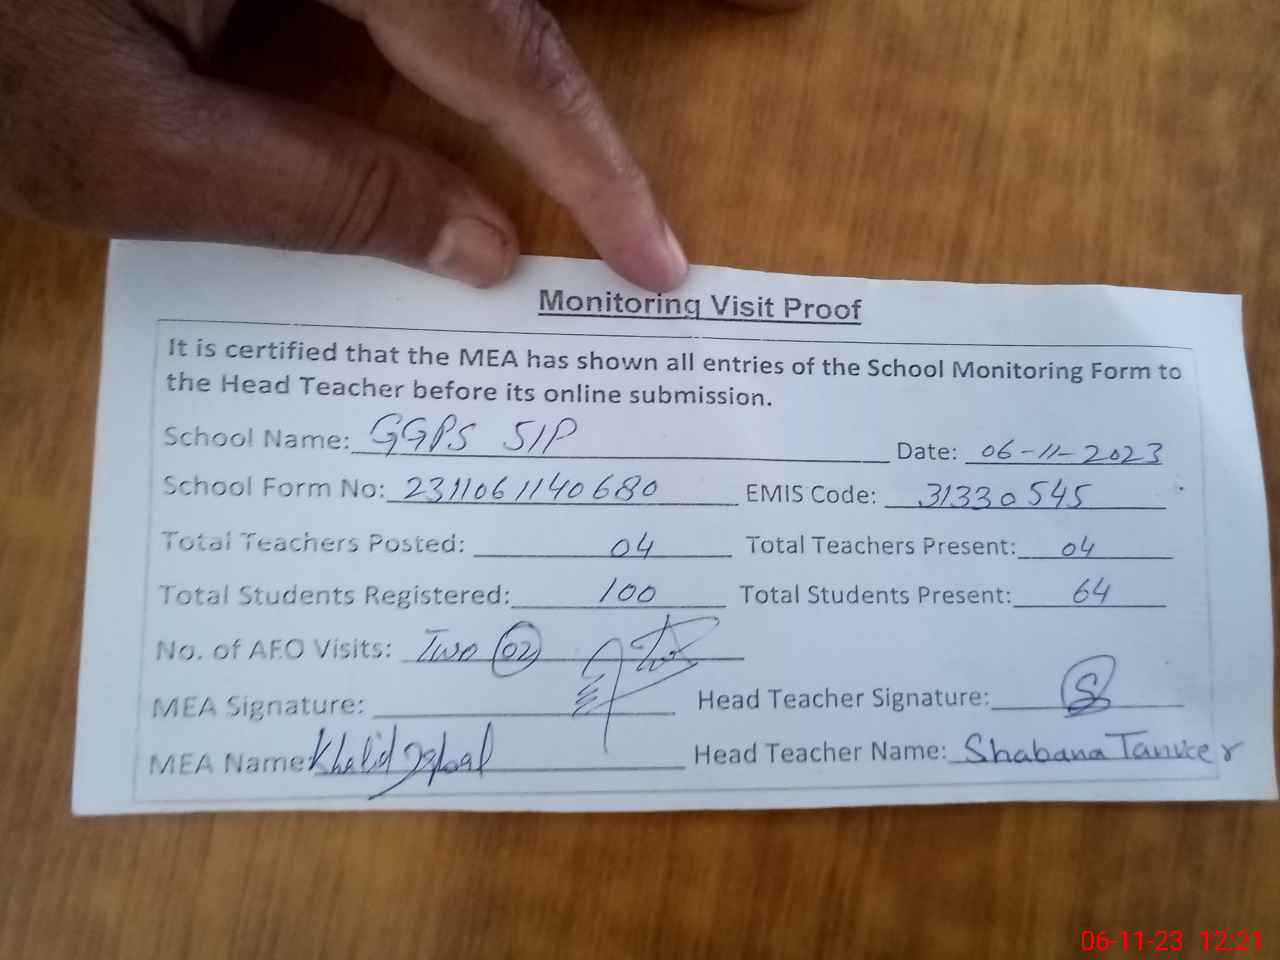 Monitoring Visit Proof
It is certified that the MEA has shown all entries of the School Monitoring Form to
the Head Teacher before its online submission.
School Name: GGPS 51P Date: 06-11-2023
School Form No: 2311061140680 EMIS Code: 31330545
Total Teachers Posted: 04 Total Teachers Present: 04
Total Students Registered: 100 Total Students Present: 64
No. of AEO Visits: Two 02
MEA Signature: Head Teacher Signature:
MEA Name: Khalid Iqbal Head Teacher Name: Shabana Tanveer
06-11-23 12:21